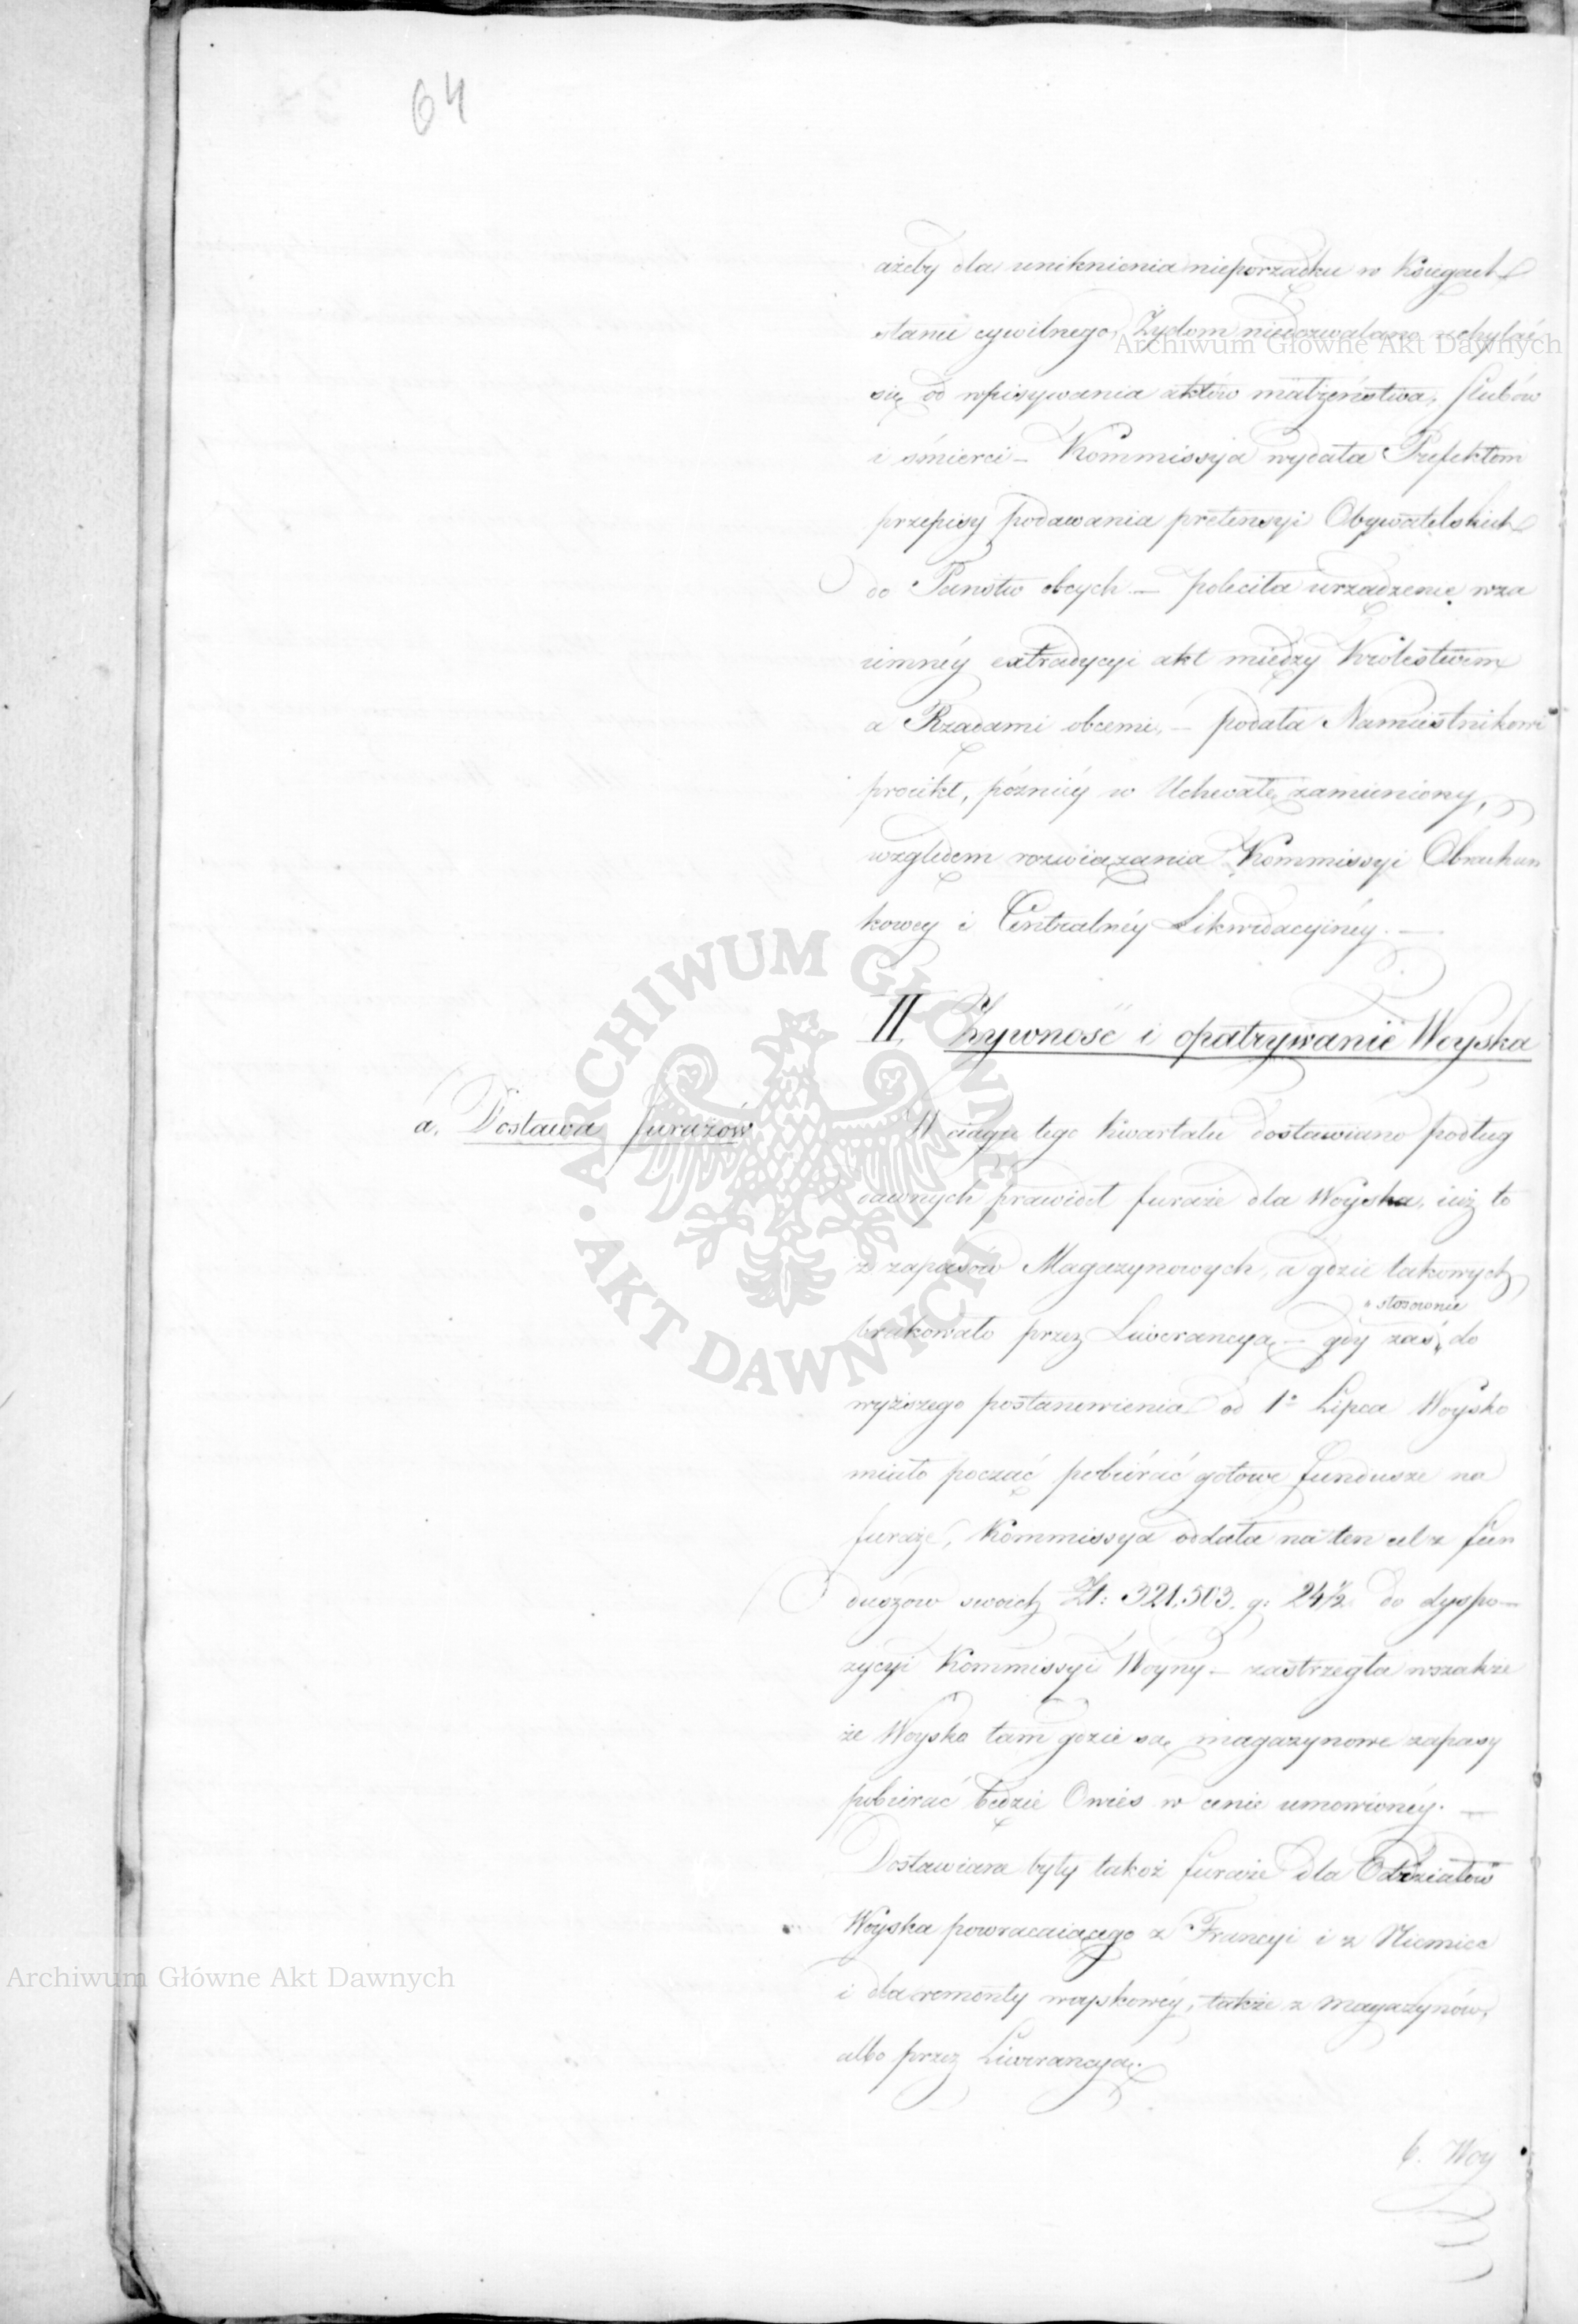 64
ażeby dla uniknienia nieporządku w Księgach
stanu cywilnego, Żydom niedozwalano uchylać
się od wpisywania aktów małżeństwa, ślubów
i śmierci – Kommissyia wydała Prefektom
przepisy podawania pretensyi Obywatelskich
do Państw obcych – poleciła urządzenie wza
iemnéy extradycyi akt między Królestwem
a Rządami obcemi, – podała Namiestnikowi
proiekt, późniéy w Uchwałę zamieniony,
względem rozwiązania Kommissyi Obrachun
kowey i Centralnéy Likwidacyinéy. –
II. Żywność i opatrywanie Woyska
a. Dostawa furażów
W ciągu tego kwartału dostawiano podług
dawnych prawideł furaże dla Woyska, iuż to
z zapasów Magazynowych, a gdzie takowych
brakowało przez Liwerancyą – gdy zaś stosownie do
wyższego postanowienia od 1º Lipca Woysko
miało począć pobiérać gotowe fundusze na
furaże, Kommissya oddała na ten cel z fun
duszów swoich Zł: 321,503. g: 24½ do dyspo–
zycyi Kommissyi Woyny – zastrzegła wszakże
że Woysko tam gdzie są magazynowe zapasy
pobiérać będzie Owies w cenie umowionéy. –
Dostawiane były takoż furaże dla Oddziałów
Woyska powracaiącego z Francyi i z Niemiec
i dla remonty woyskowéy, także z magazynów,
albo przez Liwerancyą.
b. Woy
Archiwum Główne Akt Dawnych
ARCHIWUM GŁÓWNE AKT DAWNYCH
Archiwum Główne Akt Dawnych